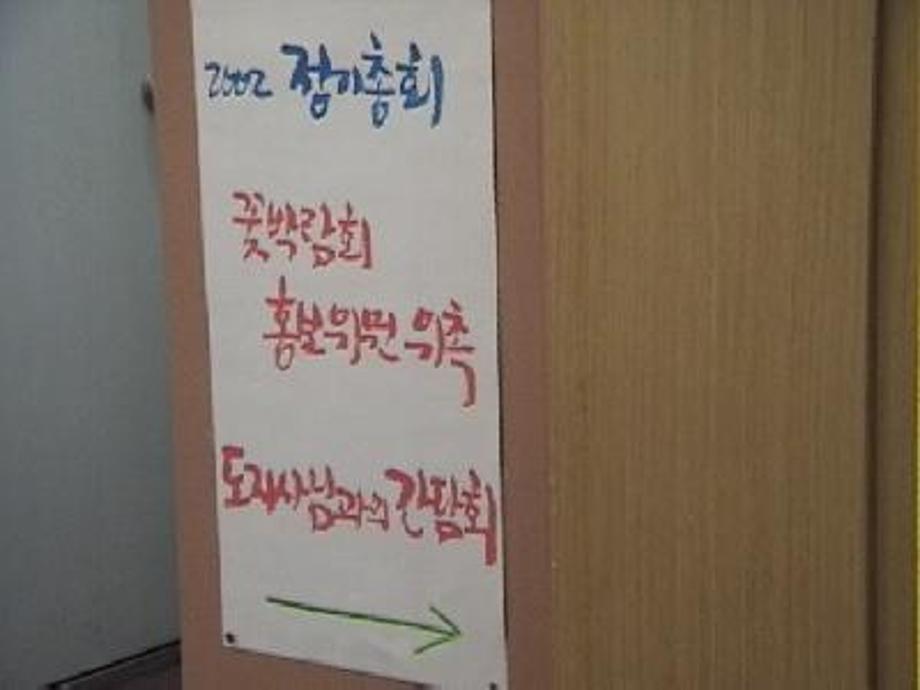 2002 정기총회
꽃박람회
홍보위원 위촉
도지사님과의 간담회